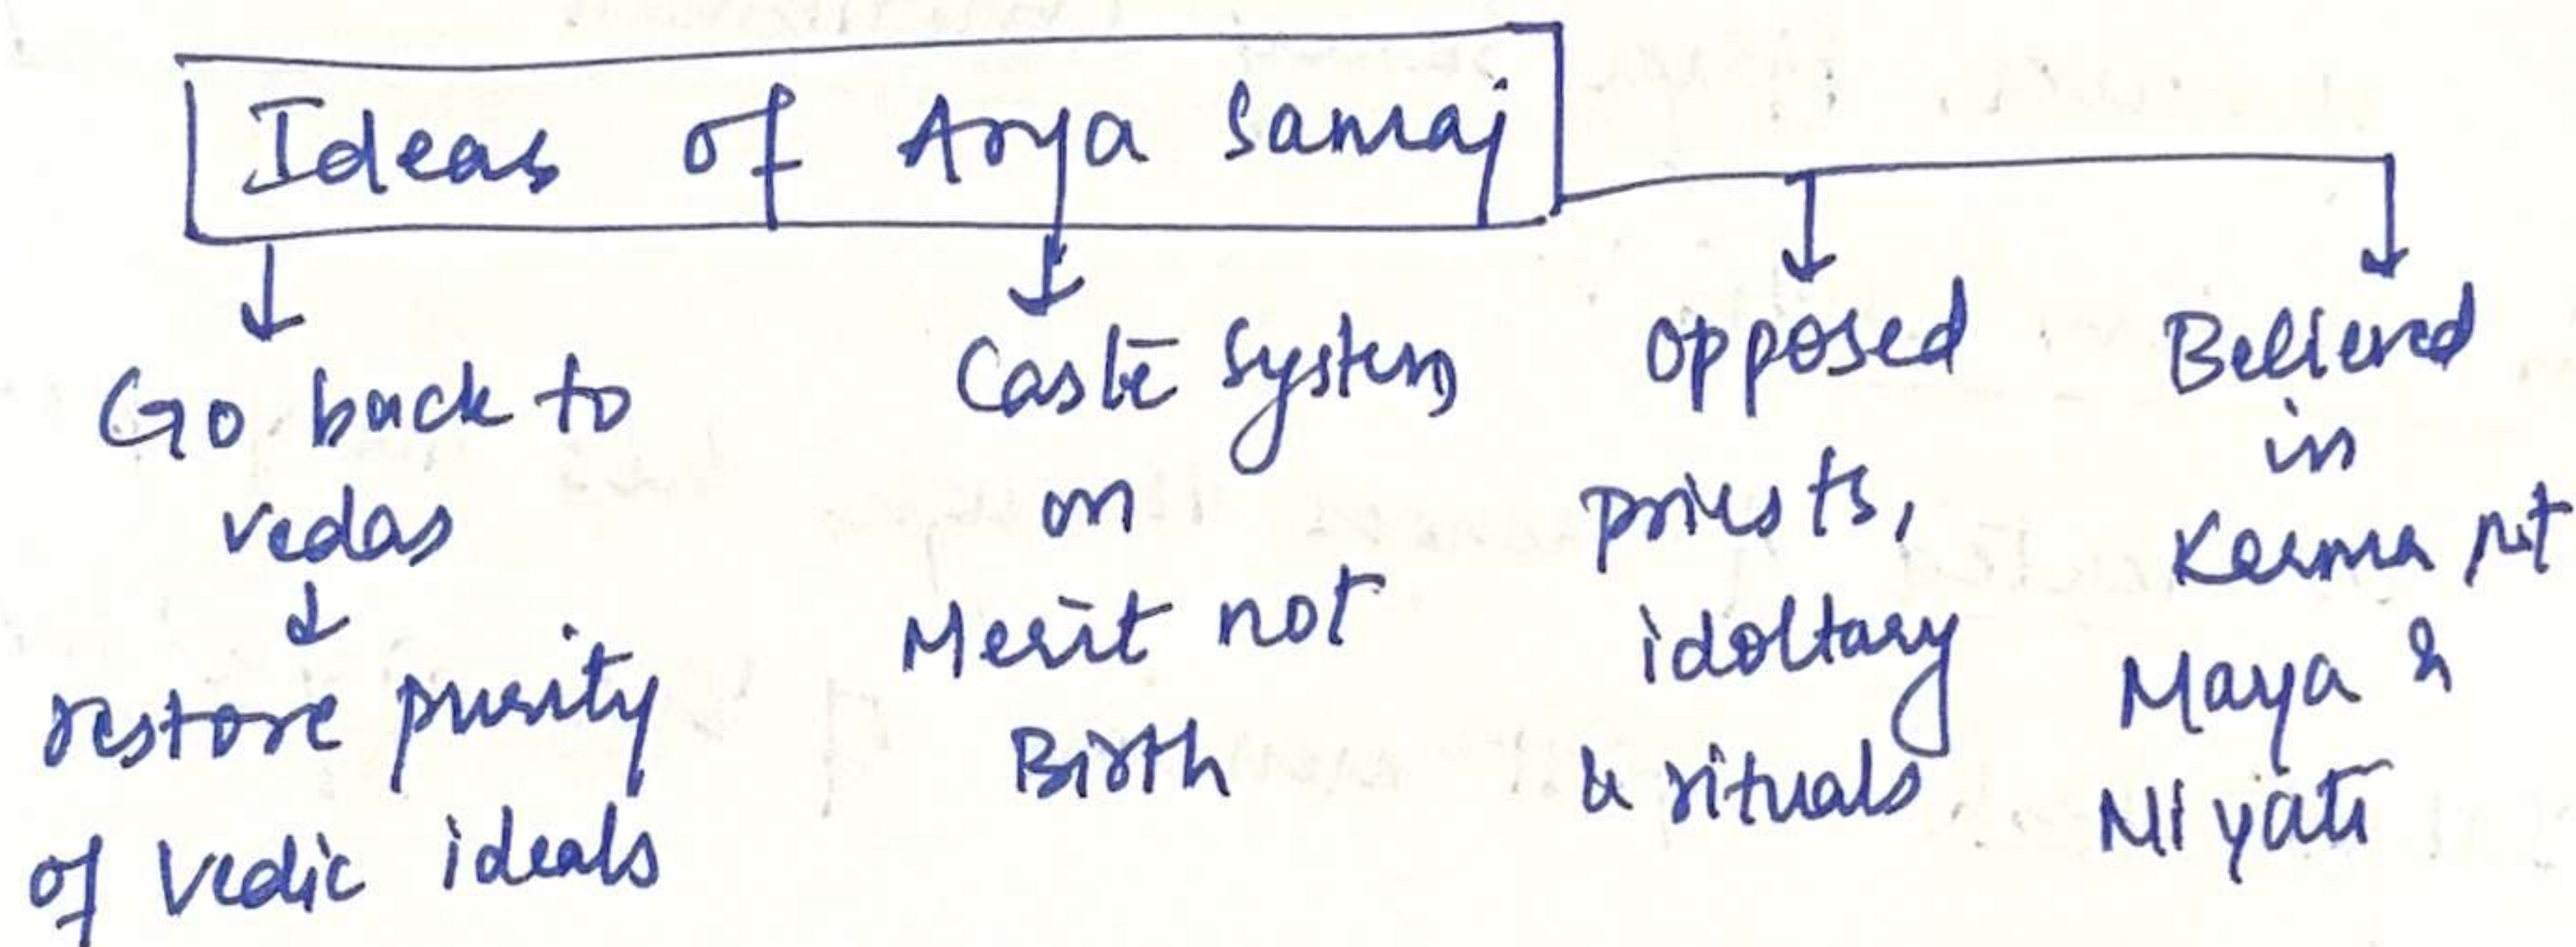 Ideas of Arya Samaj
Go back to
vedas
restore purity
of Vedic ideals
Caste System
on
Merit not
Birth
opposed
priests,
idoltary
& rituals
Believed
in
Karma not
Maya &
Niyati